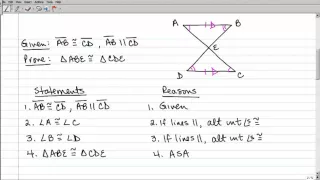 A B
Given: AB ≅ CD , AB ∥ CD
E
Prove: △ABE ≅ △CDE
D C
Statements Reasons
1. AB ≅ CD, AB ∥ CD 1. Given
2. ∠A ≅ ∠C 2. If lines ∥, alt int ∠s ≅
3. ∠B ≅ ∠D 3. If lines ∥, alt int ∠s ≅
4. △ABE ≅ △CDE 4. ASA